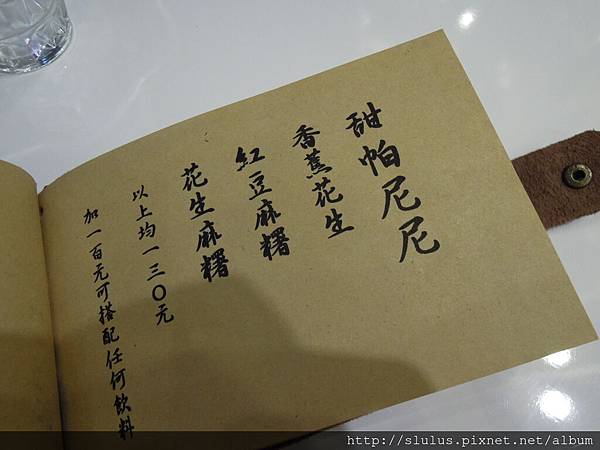 甜帕尼尼
香蕉花生
紅豆麻糬
花生麻糬
以上均一三〇元
加一百元可搭配任何飲料
http://slulus.pixnet.net/album